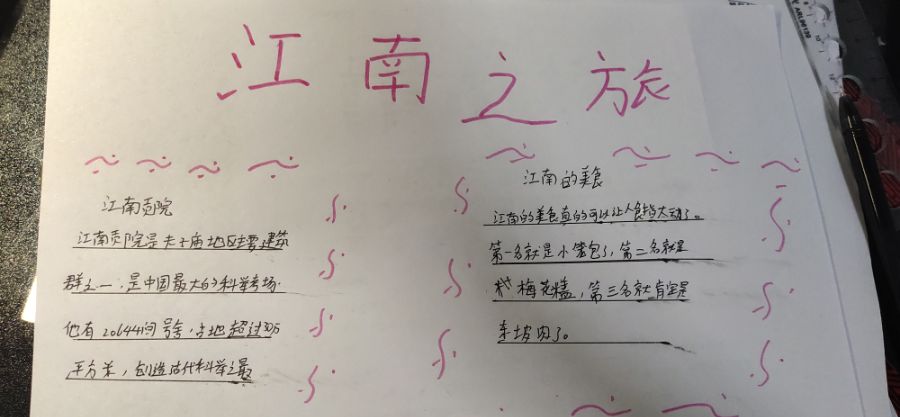 江南之旅
江南贡院
江南贡院是夫子庙地区主要建筑
群之一,是中国最大的科举考场.
他有20644间号舍,占地超过30万
平方米,创造古代科举之最
江南的美食
江南的美食真的可以让人食指大动了。
第一名就是小笼包了,第二名就是
梅花糕,第三名就肯定是
东坡肉了。